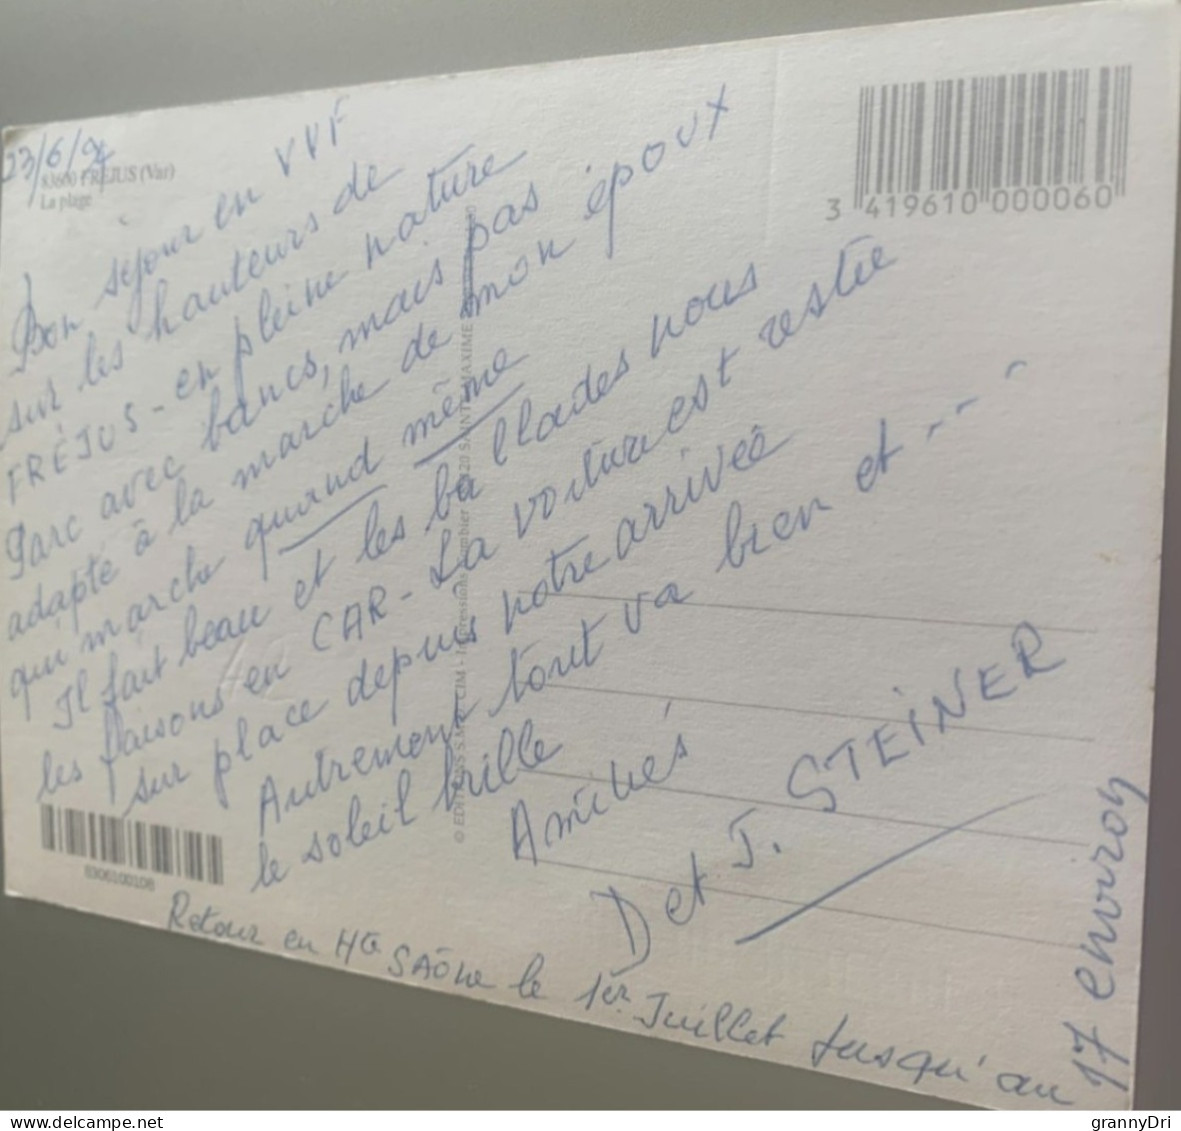 23/6/97
83600 FREJUS (Var)
La plage
Bon séjour en VVF
sur les hauteurs de
FRÉJUS - en pleine nature
Parc avec bancs, mais pas
adapté à la marche de mon époux
qui marche quand même
Il fait beau et les ballades nous
les faisons en CAR - La voiture est restée
sur place depuis notre arrivée
Autrement tout va bien et - - -
le soleil brille
Amitiés
D et J. STEINER
Retour en Hte SAÔNE le 1er Juillet jusqu'au
17 environ
3 419610 000060
8306100106
© EDITIONS S.M.C.CIM - Impressions Combier SAINTE MAXIME
grannyDri
delcampe.net